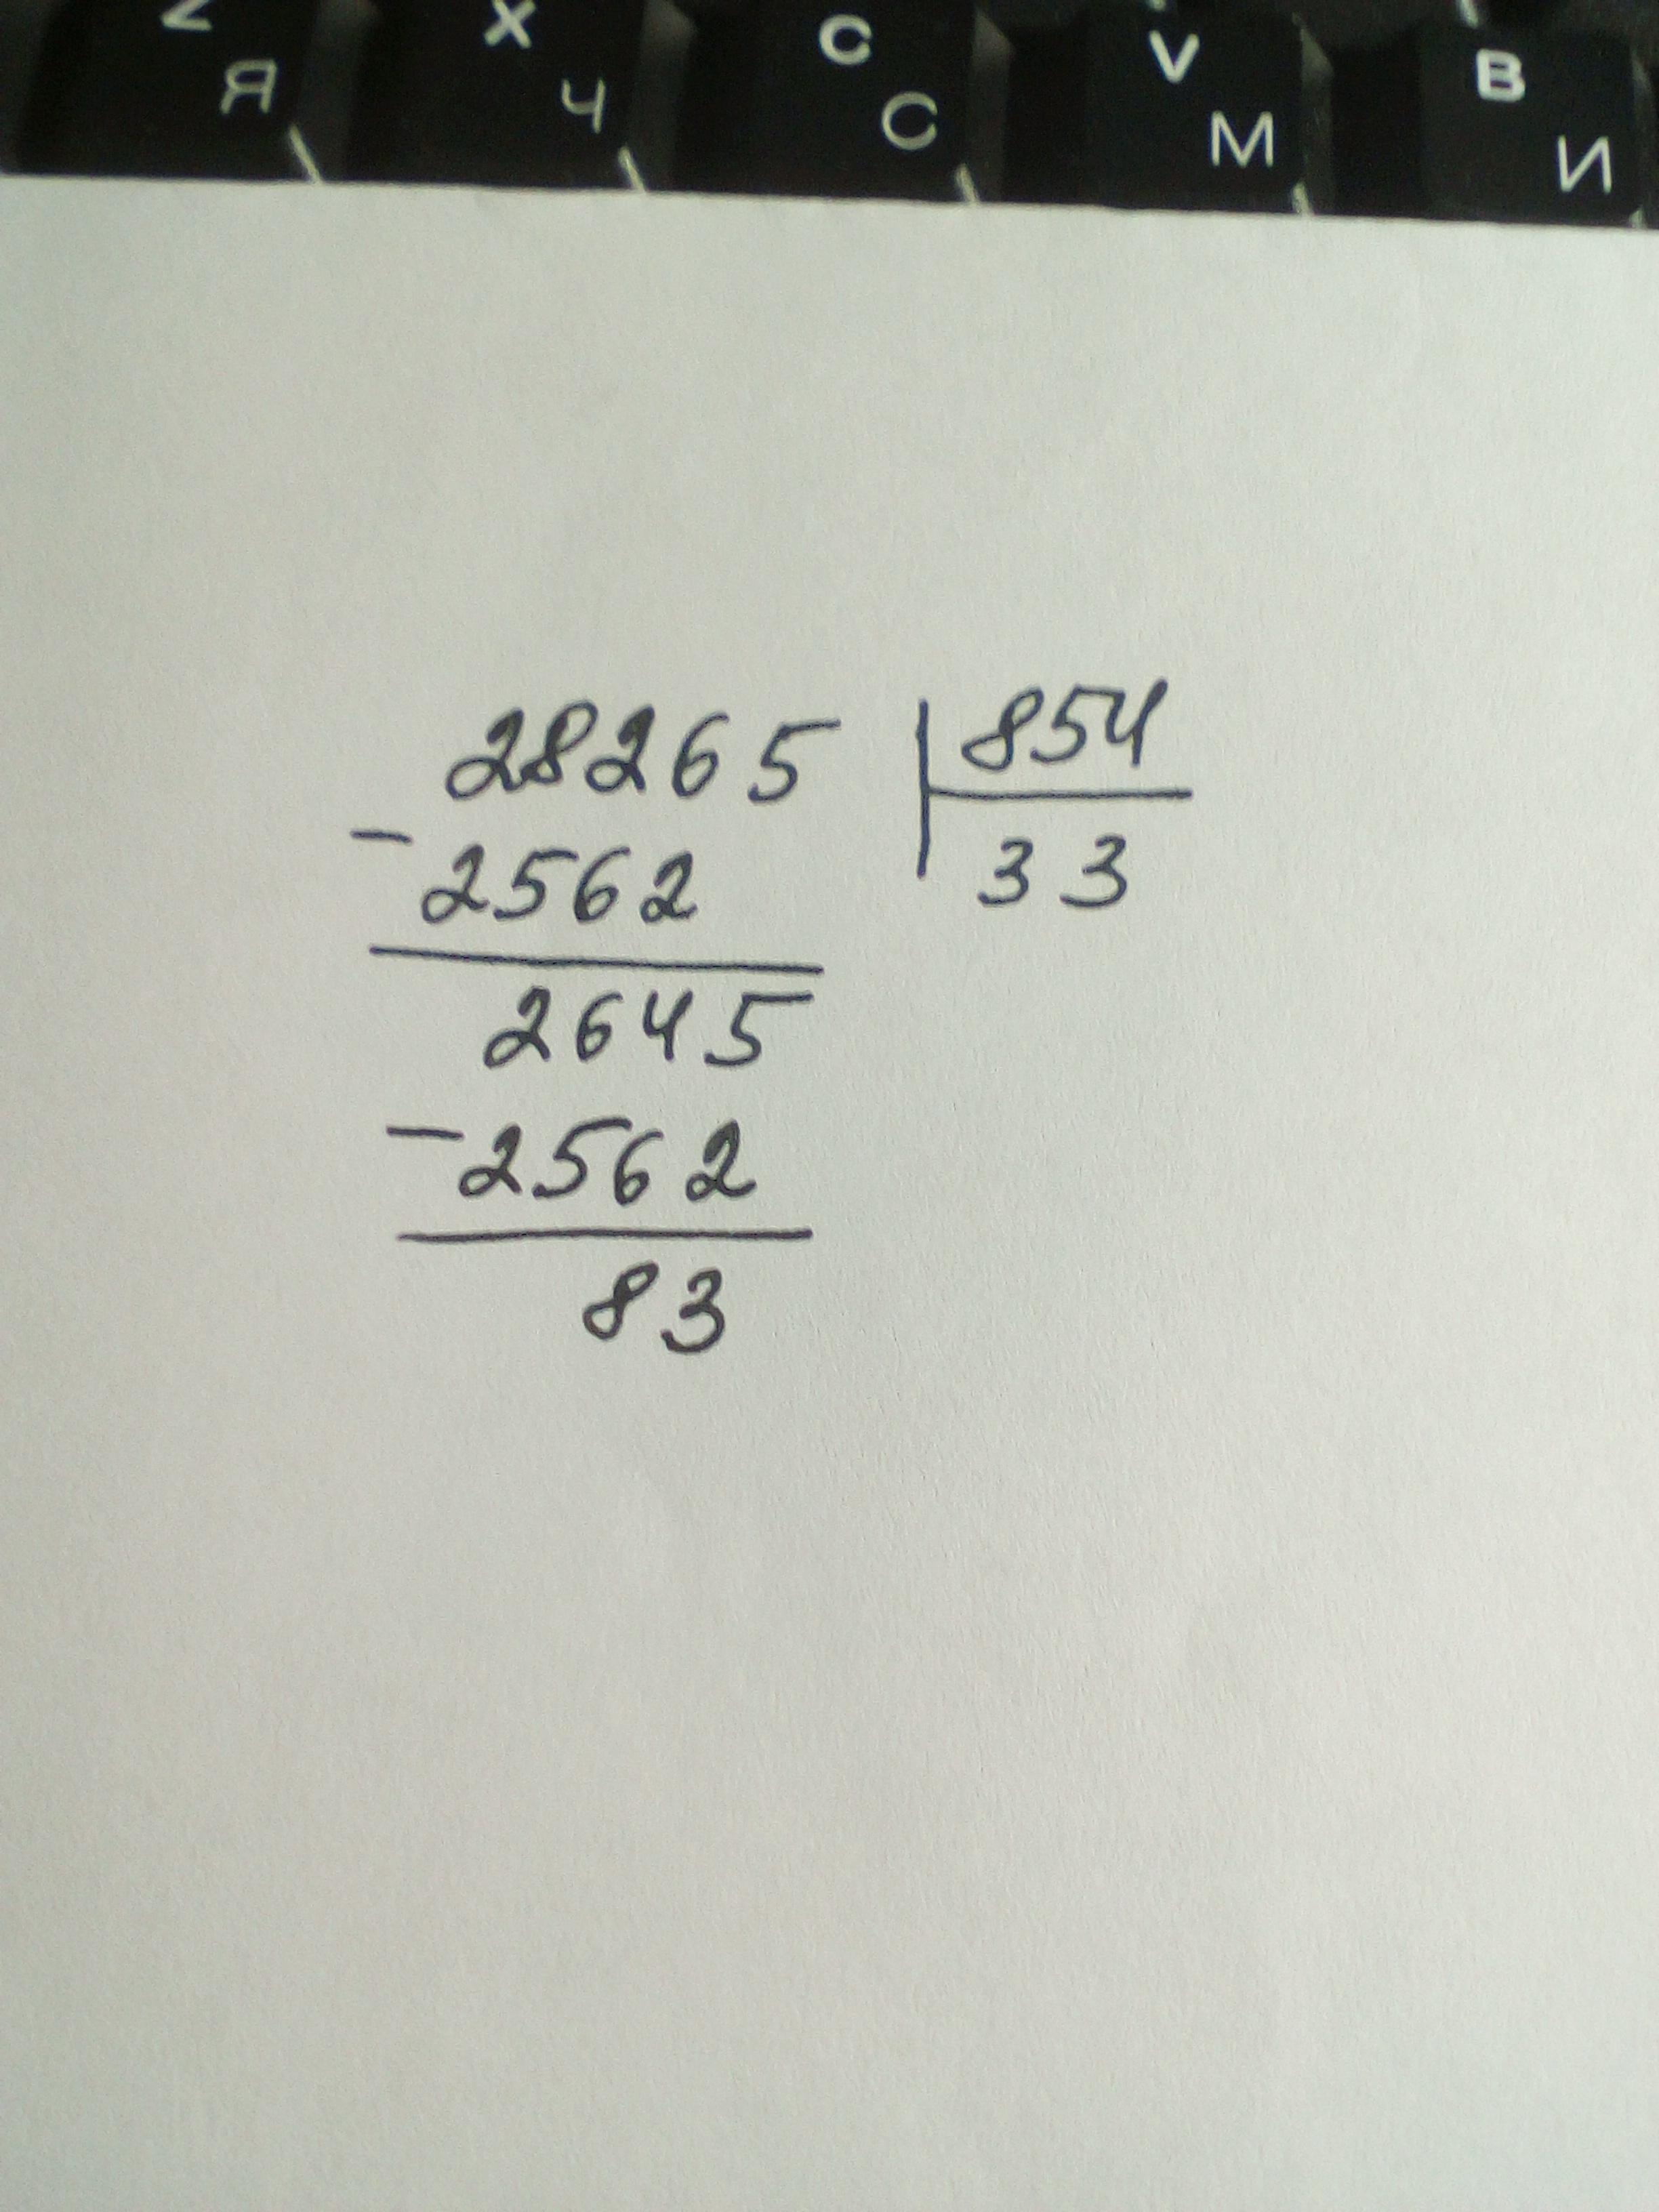 Z X C V B
Я Ч С М И
28265 | 854
- 2562 33
2645
- 2562
83